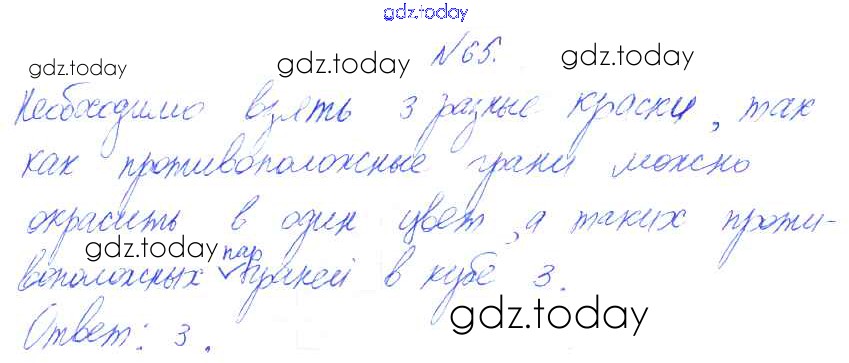 gdz.today
№65.
gdz.today gdz.today gdz.today
Необходимо взять 3 разные краски, так
как противоположные грани можно
окрасить в один цвет, а таких проти-
gdz.today пар
воположных граней в кубе 3.
gdz.today
Ответ: 3.